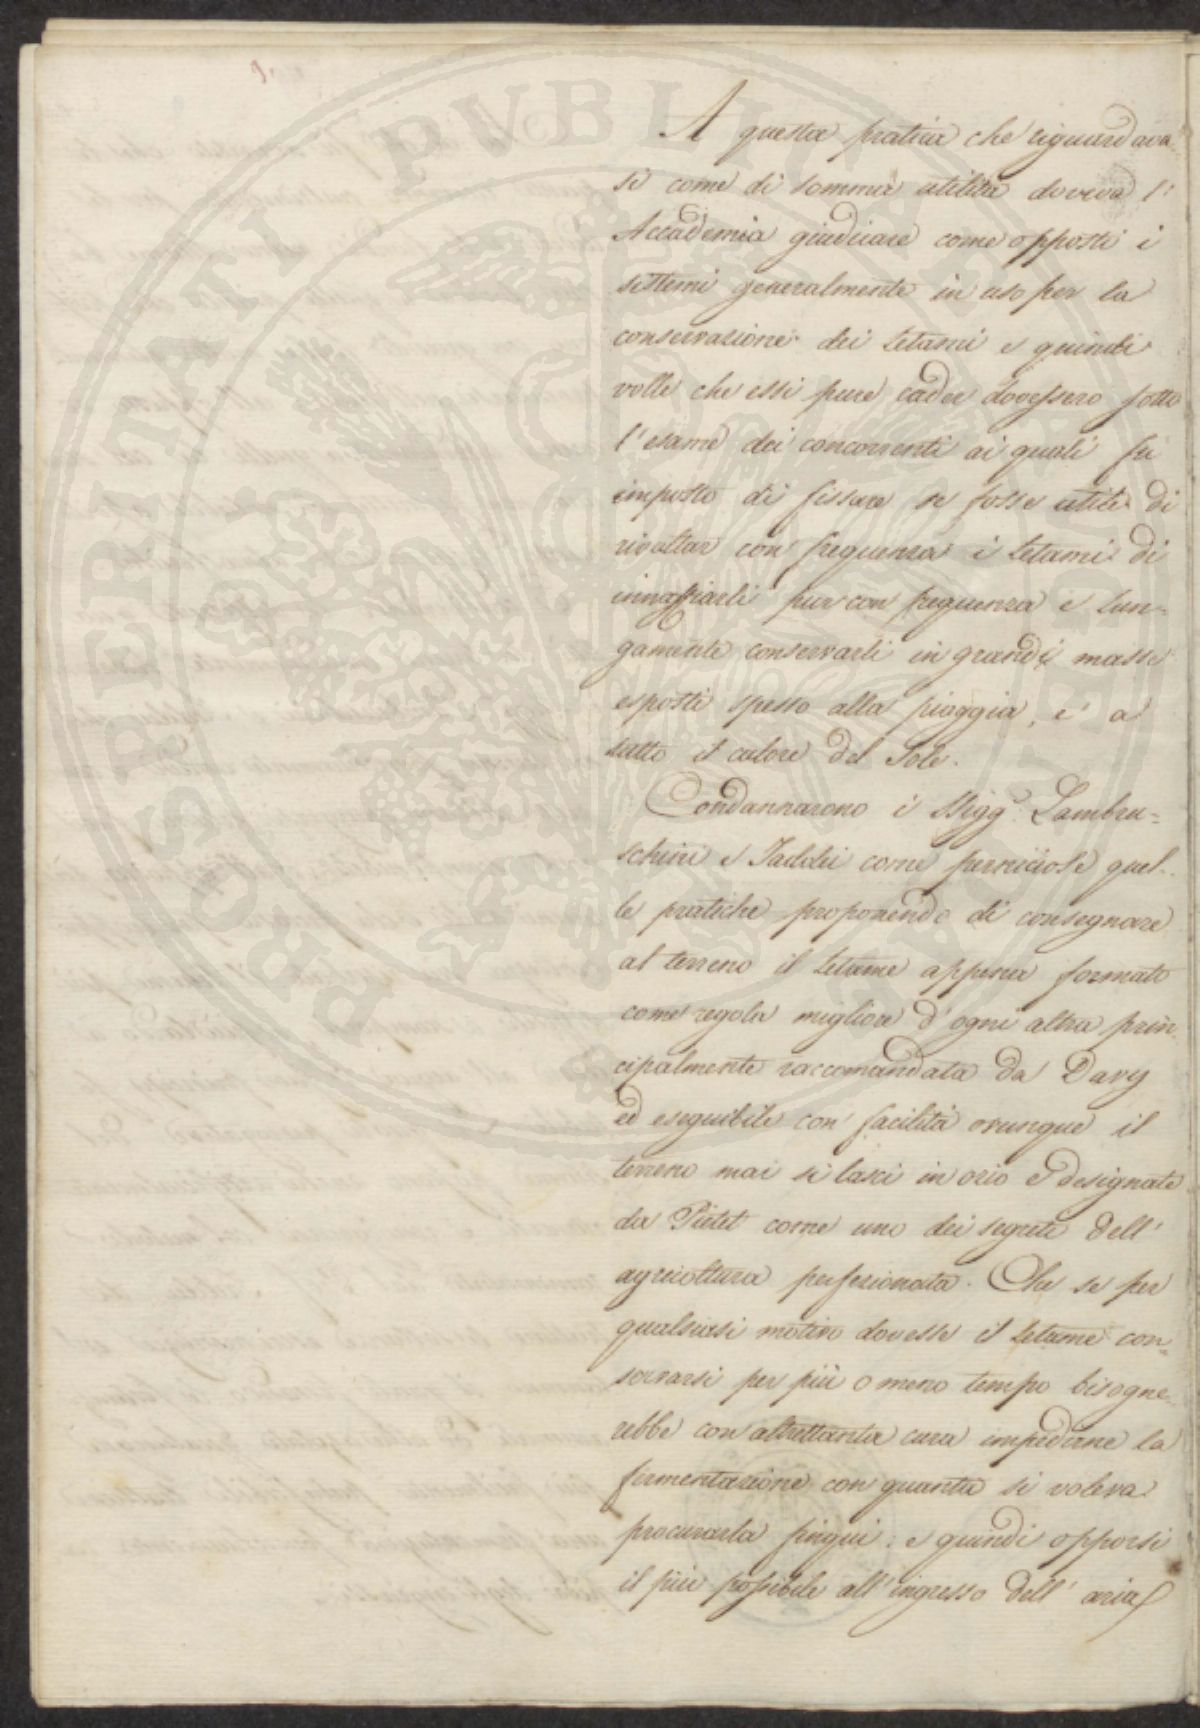 9.
A questa pratica che riguardava
si come di somma utilità doveva l'
Accademia giudicare come opposti i
sistemi generalmente in uso per la
conservazione dei letami e quindi
volle che essi pure cader dovessero sotto
l'esame dei concorrenti ai quali fu
imposto di fissare se fosse utile di
rivoltar con frequenza i letami di
innaffiarli pur con frequenza e lun=
gamente conservarli in grandi masse
esposti spesso alla pioggia, e a
tutto il calore del Sole.
Condannarono i SSigg.ri Lambru=
schini e Taddei come perniciose quel=
le pratiche proponendo di consegnare
al terreno il letame appena formato
come regola migliore d'ogni altra prin
cipalmente raccomandata da Davy
ed eseguibile con facilità ovunque il
terreno mai si lasci in ozio e designata
da Pictet come uno dei segreti dell'
agricoltura perfezionata. Che se per
qualsiasi motivo dovesse il letame con=
servarsi per più o meno tempo bisogne=
rebbe con altrettanta cura impedirne la
fermentazione con quanta si voleva
procurarla pingui: e quindi opporsi
il più possibile all'ingresso dell'aria
PROSPERITATI PVBLICAE